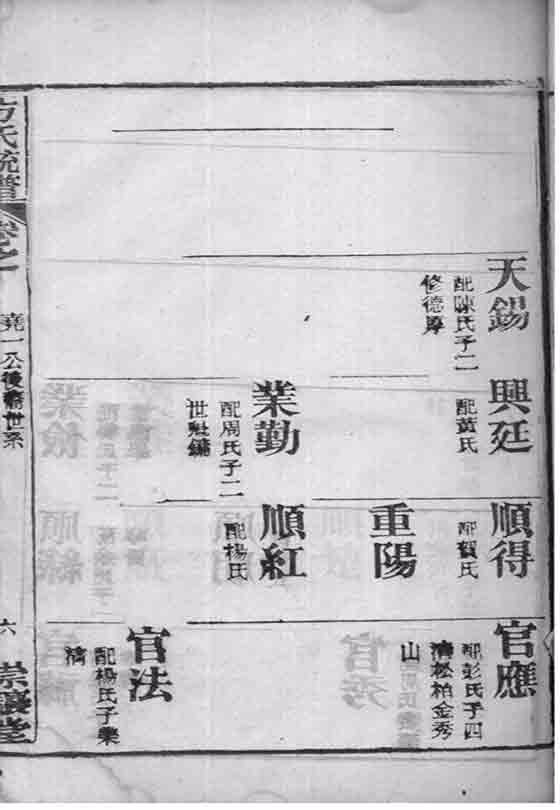 天錫
配陳氏子二
修德厚
興廷
配黃氏
業勤
配周氏子二
順得
配賀氏
重陽
順紅
配楊氏
官應
配彭氏子四
松柏金秀
山
官法
配楊氏子業
方氏統譜
卷之一
堯一公後裔世系
六
崇
堂